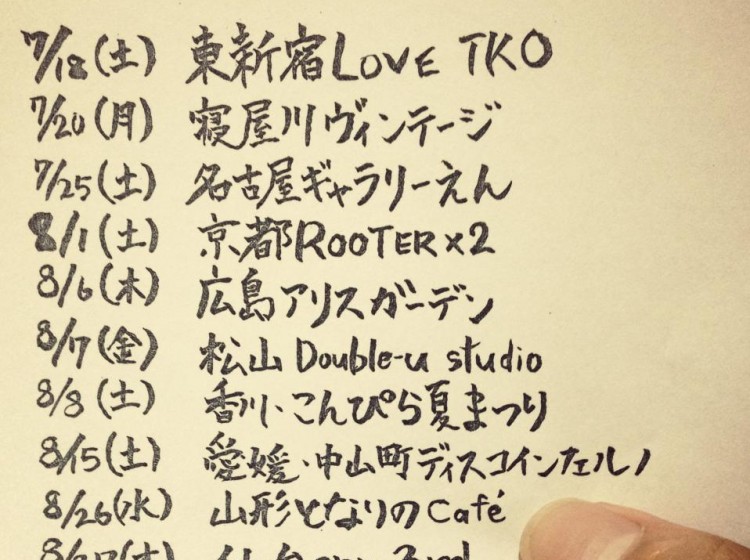 7/18(土) 東新宿LOVE TKO
7/20(月) 寝屋川ヴィンテージ
7/25(土) 名古屋ギャラリーえん
8/1(土) 京都ROOTER×2
8/6(木) 広島アリスガーデン
8/7(金) 松山 Double-u studio
8/8(土) 香川・こんぴら夏まつり
8/15(土) 愛媛・中山町ディスコインフェルノ
8/26(水) 山形となりのCafé